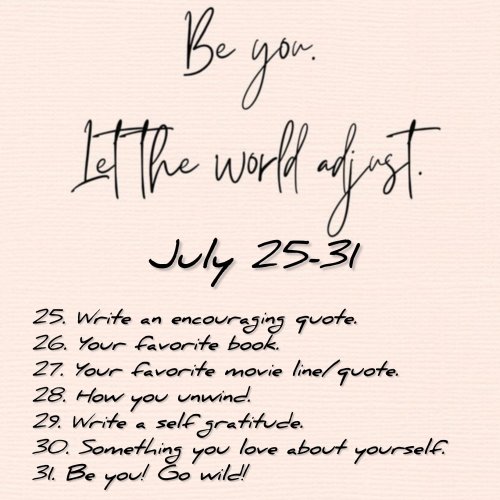 Be you.
Let the world adjust.
July 25-31
25. Write an encouraging quote.
26. Your favorite book.
27. Your favorite movie line/quote.
28. How you unwind.
29. Write a self gratitude.
30. Something you love about yourself.
31. Be you! Go wild!